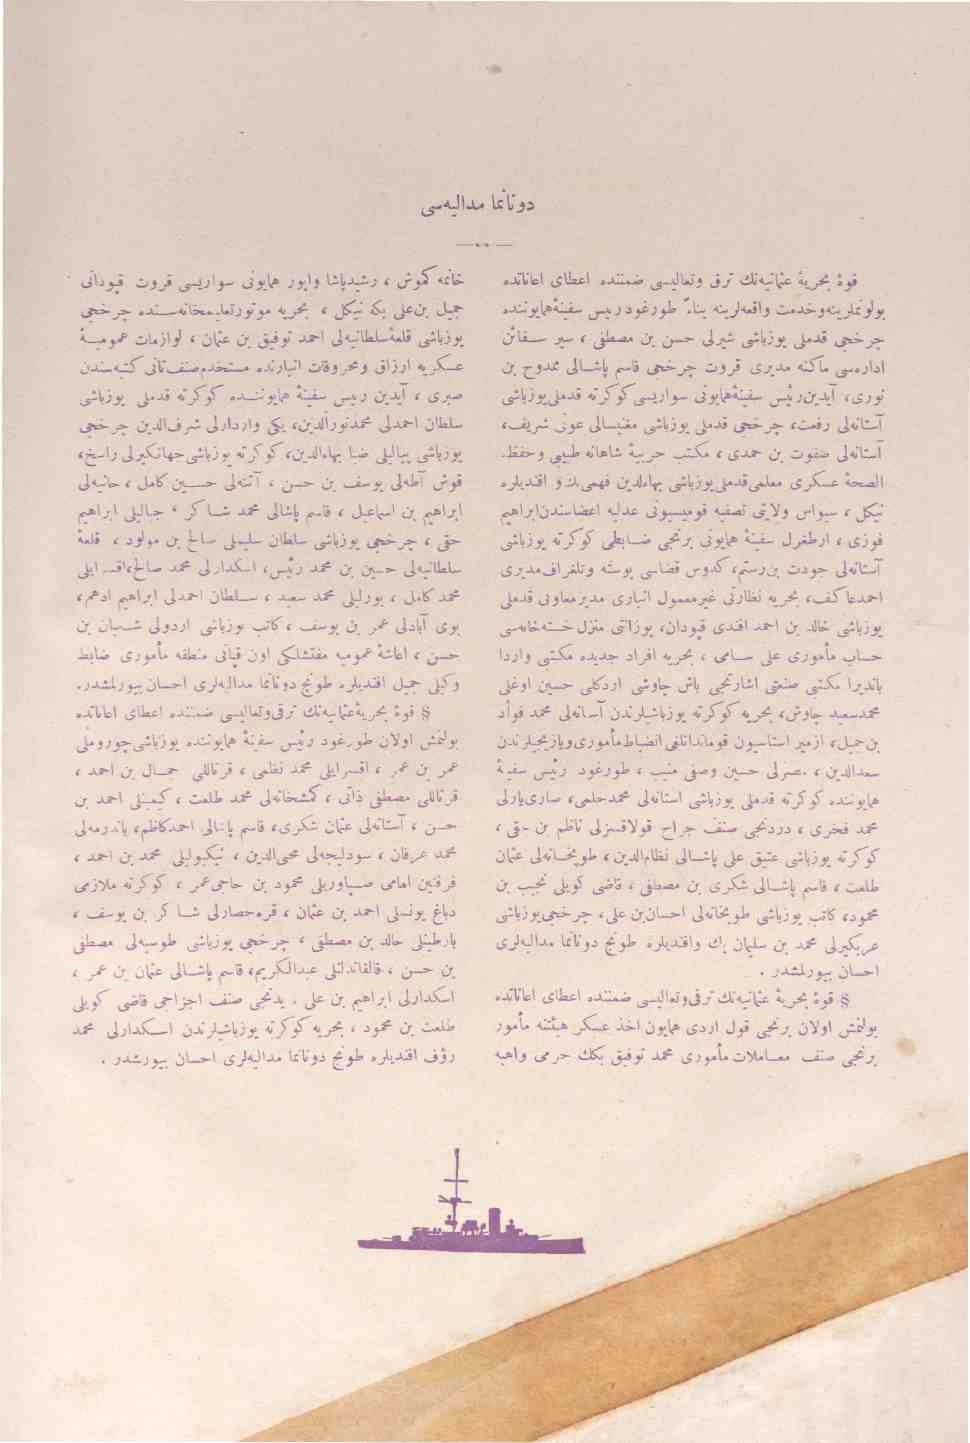 دونانما مدالیه‌سی
قوهٔ بحریهٔ عثمانیه‌نك ترقی وتعالیسی ضمننده اعطای اعاناتده
بولونملرینه‌وخدمت واقعه‌لرینه بناءً طورغود رییس سفینهٔ‌همایوننده
چرخجی قدملی یوزباشی شیرلی حسن بن مصطفی ، سیر سفائن
اداره‌سی ماکنه مدیری قروت چرخجی قاسم پاشالی ممدوح بن
نوری، آیدین رئیس سفینهٔ‌همایونی سواریسی کوکرته قدملی‌یوزباشی
آستانه‌لی رفعت، چرخجی قدملی یوزباشی مغنیسالی عونی شریف،
آستانه‌لی صفوت بن حمدی ، مکتب حربیهٔ شاهانه طبیبی وحفظ
الصحهٔ عسکری معلمی‌قدملی‌یوزباشی بهاءالدین فهمی‌بك و افندیلره
نیکل ، سیواس ولایتی تصفیه قومیسیونی عدلیه اعضاسندن‌ابراهیم
فوزی ، ارطغرل سفینهٔ همایونی برنجی ضابطی کوکرته یوزباشی
آستانه‌لی جودت بن‌رستم، کدوس قضاسی پوسته وتلغراف‌مدیری
احمدعاکف، بحریه نظارتی غیرمعمول انباری مدیرمعاونی قدملی
یوزباشی خالد بن احمد افندی قپودان، بوزانتی منزل خسته‌خانه‌سی
حساب مأموری علی سامی ، بحریه افراد جدیده مکتبی واردا
باندیرا مکتبی صنعتی اشارتجی باش چاوشی اردکلی حسین اوغلی
محمدسعید چاوش، بحریه کوکرته یوزباشیلرندن آستانه‌لی محمد فؤاد
بن‌جمیل، ازمیر استاسیون قوماندانلغی انضباط‌مأموری‌ویازیجیلرندن
سعدالدین ، مصرلی حسین وصفی منیب ، طورغود رئیس سفینهٔ
همایوننده کوکرته قدملی یوزباشی استانه‌لی محمدحلمی، صاری‌یارلی
محمد فخری ، دردنجی صنف جراح قولاقسزلی ناظم بن حقی ،
کوکرته یوزباشی عتیق علی پاشالی نظام‌الدین ، طوپخانه‌لی عثمان
طلعت ، قاسم پاشالی شکری بن مصطفی ، قاضی کویلی نجیب بن
محمود، کاتب یوزباشی طوپخانه‌لی احسان‌بن علی، چرخجی‌یوزباشی
عربکیرلی محمد بن سلیمان بك وافندیلره طونج دونانما مدالیه‌لری
احسان بیورلمشدر .
§ قوهٔ بحریهٔ عثمانیه‌نك ترقی‌وتعالیسی ضمننده اعطای اعاناتده
بولنمش اولان برنجی قول اردی همایون اخذ عسکر هیئتنه مأمور
برنجی صنف معاملات مأموری محمد توفیق بكك حرمی واهبه
خانمه کموش ، رشیدپاشا واپور همایونی سواریسی قروت قپودانی
جمیل بن‌علی بكه نیکل ، بحریه موتورتعلیمخانه‌سنده چرخجی
یوزباشی قلعهٔ‌سلطانیه‌لی احمد توفیق بن عثمان ، لوازمات عمومیهٔ
عسکریه ارزاق ومحروقات انبارنده مستخدم‌صنف‌ثانی کتبه‌سندن
صبری ، آیدین رییس سفینهٔ همایوننده کوکرته قدملی یوزباشی
سلطان احمدلی محمدنورالدین، یکی واردارلی شرف‌الدین چرخجی
یوزباشی پیاله‌لی ضیا بهاءالدین، کوکرته یوزباشی‌جهانکیرلی راسخ،
قوش آطه‌لی یوسف بن حسن ، آتنه‌لی حسین کامل ، حانیه‌لی
ابراهیم بن اسماعیل ، قاسم پاشالی محمد شاکر ، جبالیلی ابراهیم
حقی ، چرخجی یوزباشی سلطان سلیملی صالح بن مولود ، قلعهٔ
سلطانیه‌لی حسین بن محمد رئیس، اسکدارلی محمد صالح،اقسرایلی
محمد کامل ، بورلیلی محمد سعید ، سلطان احمدلی ابراهیم ادهم،
بوی آبادلی عمر بن یوسف ، کاتب یوزباشی اردولی شعبان بن
حسن ، اعاشهٔ عمومیه مفتشلکی اون قپانی منطقه مأموری ضابط
وکیلی جمیل افندیلره طونج دونانما مدالیه‌لری احسان بیورلمشدر.
§ قوهٔ بحریهٔ‌عثمانیه‌نك ترقی‌وتعالیسی ضمننده اعطای اعاناتده
بولنمش اولان طورغود رئیس سفینهٔ همایوننده یوزباشی‌چوروملی
عمر بن عمر ، اقسرایلی محمد نظمی ، قرتاللی جمال بن احمد ،
قرتاللی مصطفی ذاتی ، کمشخانه‌لی محمد طلعت ، احمد بن
حسن ، آستانه‌لی عثمان شکری، قاسم پاشالی احمدکاظم، باندرمه‌لی
محمد عرفان ، سودلیجه‌لی محیی‌الدین ، نیکبولیلی محمد بن احمد ،
فرقتین امامی صپاوریلی محمود بن حاجی‌عمر ، کوکرته ملازمی
دباغ یونسلی احمد بن عثمان ، قره‌حصارلی شاکر بن یوسف ،
بارطینلی خالد بن مصطفی ، چرخجی یوزباشی طوسیه‌لی مصطفی
بن حسن ، قالقاندلنلی عبدالکریم، قاسم پاشالی عثمان بن عمر ،
اسکدارلی ابراهیم بن علی ، یدنجی صنف اجزاجی قاضی کویلی
طلعت بن محمود ، بحریه کوکرته یوزباشیلرندن اسکدارلی محمد
رؤف افندیلره طونج دونانما مدالیه‌لری احسان بیورلمشدر .